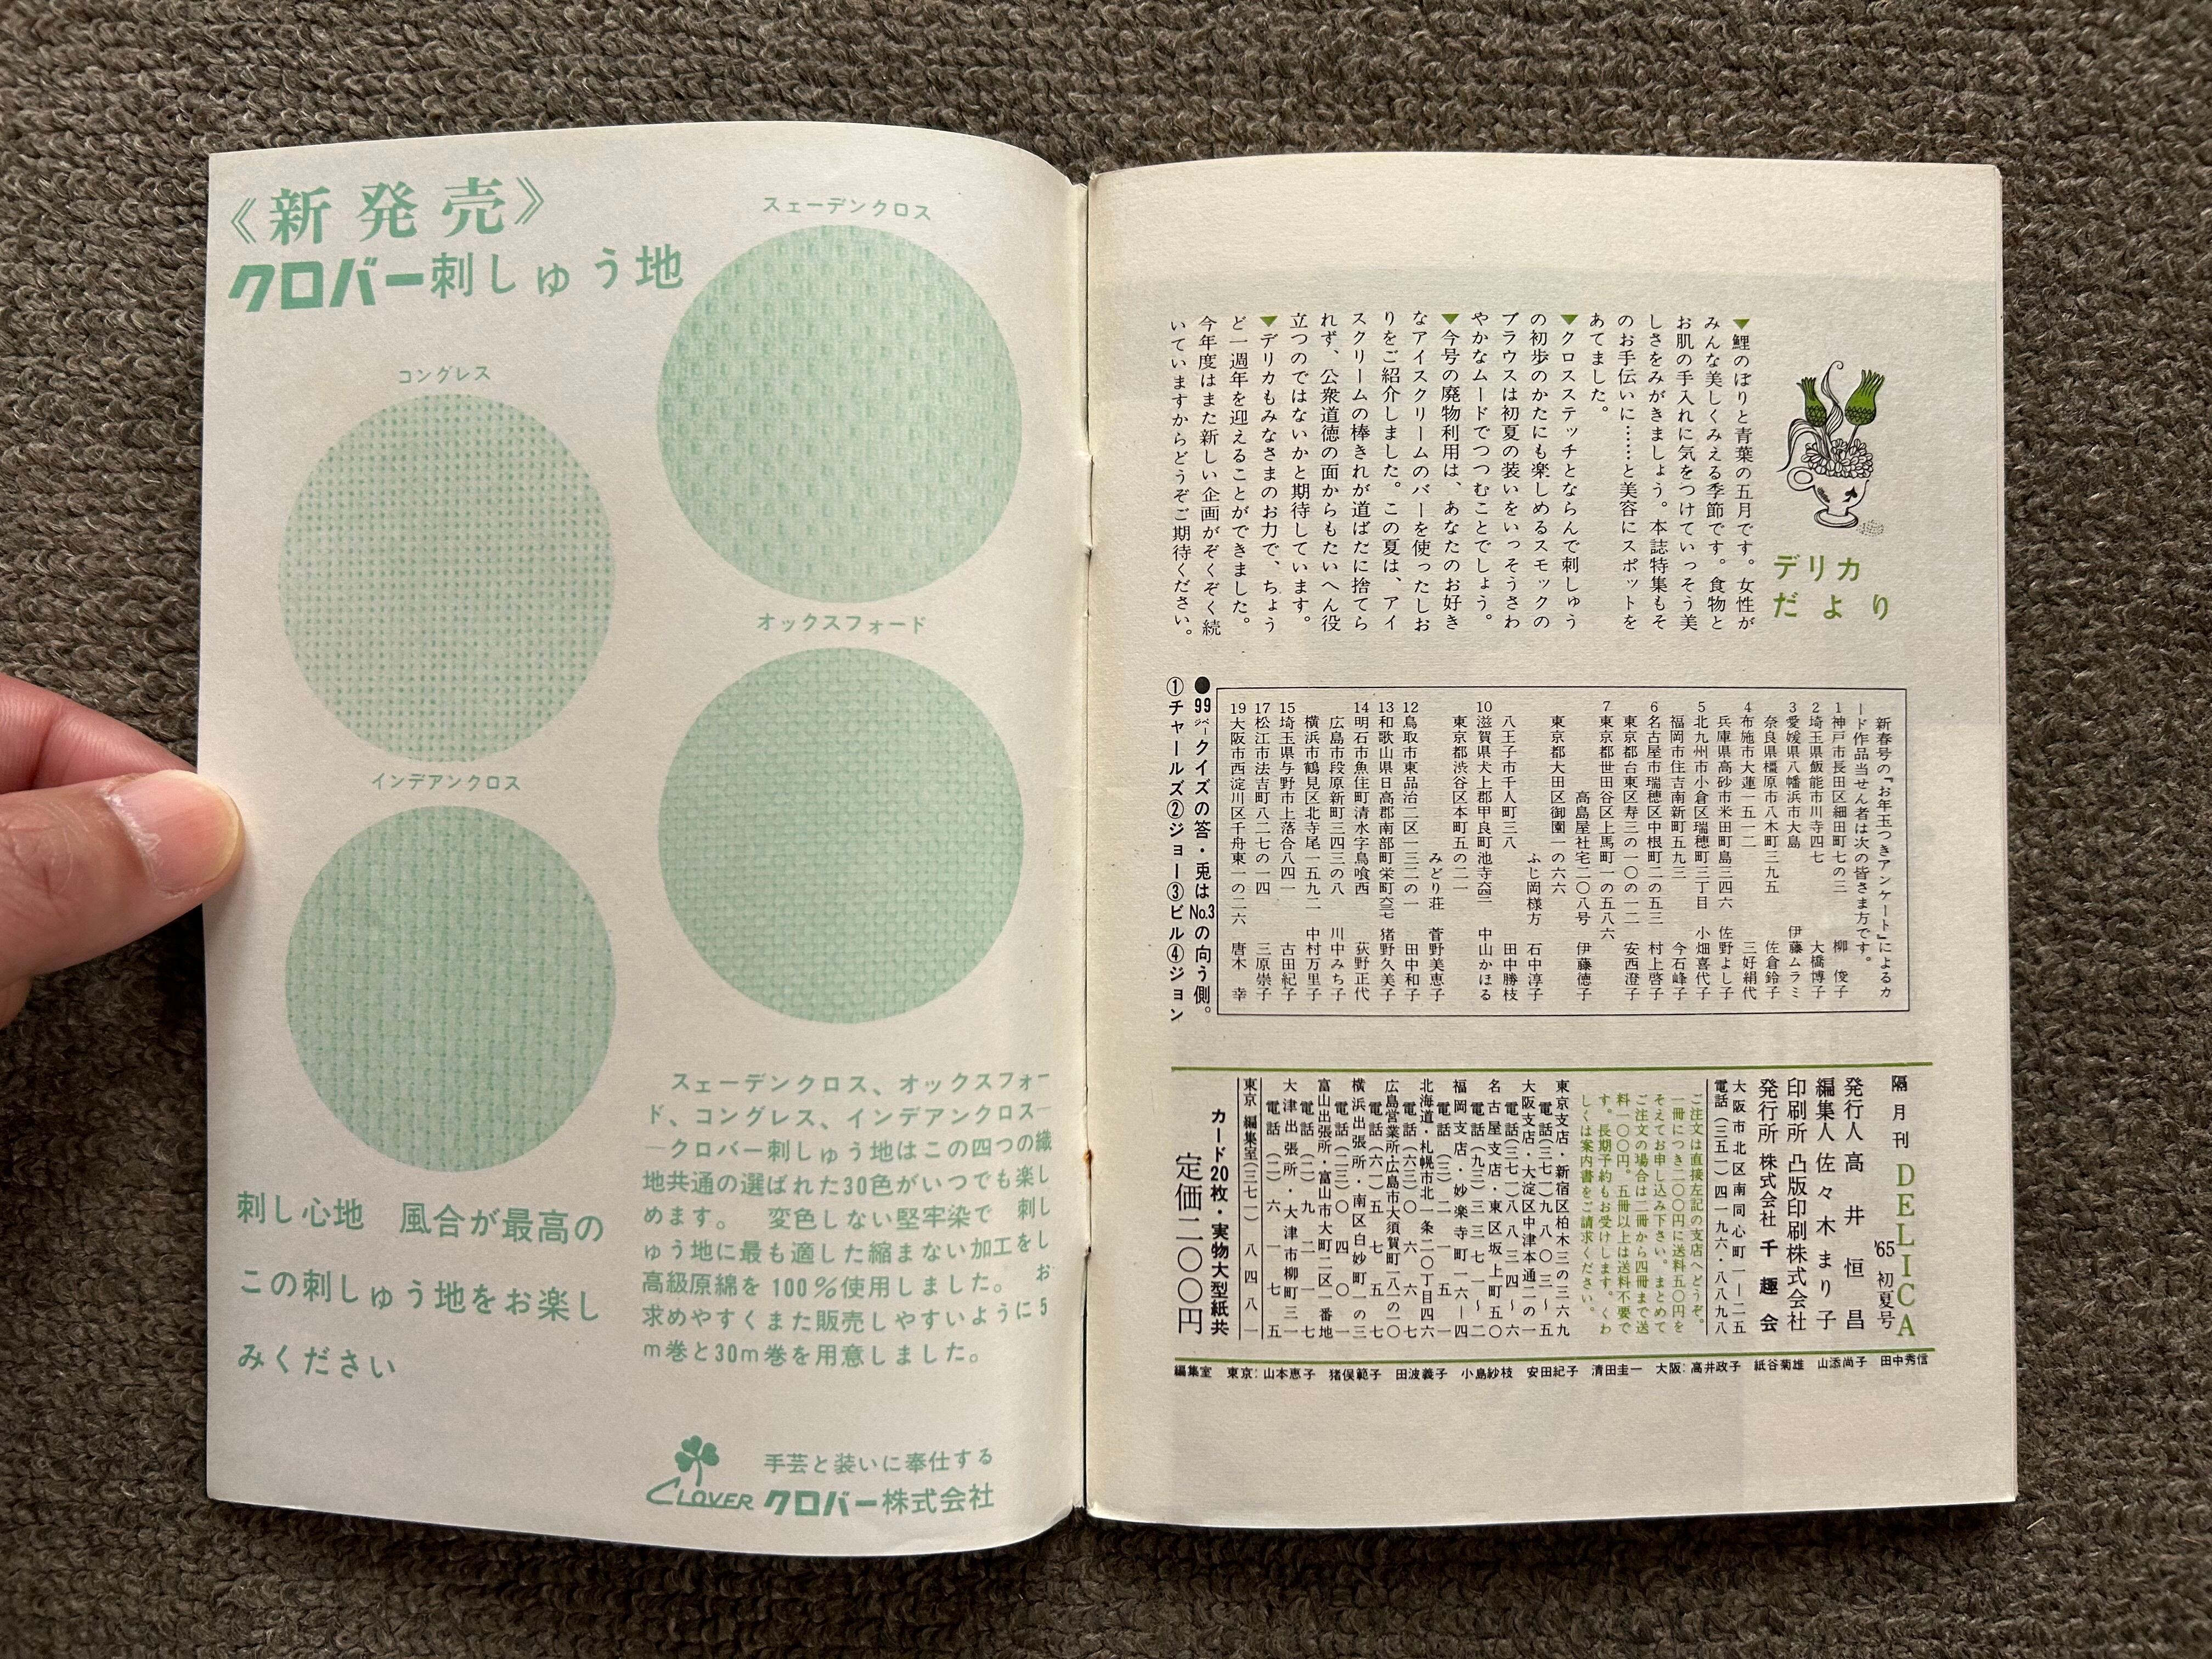 《新発売》
クロバー刺しゅう地
スェーデンクロス
コングレス
オックスフォード
インデアンクロス
刺し心地　風合が最高の
この刺しゅう地をお楽し
みください
スェーデンクロス、オックスフォー
ド、コングレス、インデアンクロス―
―クロバー刺しゅう地はこの四つの織
地共通の選ばれた30色がいつでも楽し
めます。　変色しない堅牢染で　刺し
ゅう地に最も適した縮まない加工をし
高級原綿を100％使用しました。　お
求めやすくまた販売しやすいように5
m巻と30m巻を用意しました。
CLOVER
手芸と装いに奉仕する
クロバー株式会社
デリカ
だより
▼鯉のぼりと青葉の五月です。女性が
みんな美しくみえる季節です。食物と
お肌の手入れに気をつけていっそう美
しさをみがきましょう。本誌特集もそ
のお手伝いに……と美容にスポットを
あてました。
▼クロスステッチとならんで刺しゅう
の初歩のかたにも楽しめるスモックの
ブラウスは初夏の装いをいっそうさわ
やかなムードでつつむことでしょう。
▼今号の廃物利用は、あなたのお好き
なアイスクリームのバーを使ったしお
りをご紹介しました。この夏は、アイ
スクリームの棒きれが道ばたに捨てら
れず、公衆道徳の面からもたいへん役
立つのではないかと期待しています。
▼デリカもみなさまのお力で、ちょう
ど一週年を迎えることができました。
今年度はまた新しい企画がぞくぞく続
いていますからどうぞご期待ください。
新春号の『お年玉つきアンケート』によるカ
ード作品当せん者は次の皆さま方です。
1神戸市長田区細田町七の三　柳　俊子
2埼玉県飯能市川寺四七　大橋博子
3愛媛県八幡浜市大島　伊藤ムラミ
奈良県橿原市八木町三九五　佐倉鈴子
4布施市大蓮一五一二　三好絹代
兵庫県高砂市米田町島三四六　佐野よし子
5北九州市小倉区瑞穂町三丁目　小畑喜代子
福岡市住吉南新町五九三　今石峰子
6名古屋市瑞穂区中根町二の五三　村上啓子
東京都台東区寿三の一〇の一二　安西澄子
7東京都世田谷区上馬町一の五八六
高島屋社宅二〇八号　伊藤徳子
東京都大田区御園一の六六
ふじ岡様方　石中淳子
八王子市千人町三八　田中勝枝
10滋賀県犬上郡甲良町池寺　中山かほる
東京都渋谷区本町五の二一
みどり荘　菅野美恵子
12鳥取市東品治二区一三二の一　田中和子
13和歌山県日高郡南部町栄町　猪野久美子
14明石市魚住町清水字鳥喰西　荻野正代
広島市段原新町三四三の八　川中みち子
横浜市鶴見区北寺尾一五九二　中村万里子
15埼玉県与野市上落合八四一　古田紀子
17松江市法吉町八二七の一四　三原崇子
19大阪市西淀川区千舟東一の二六　唐木　幸
●99ページクイズの答・兎はNo.3の向う側。
①チャールズ②ジョー③ビル④ジョン
隔月刊　DELICA　'65初夏号
発行人　高井恒昌
編集人　佐々木まり子
印刷所　凸版印刷株式会社
発行所　株式会社　千趣会
大阪市北区南同心町一―二五
電話（三五一）四一九六・八八九八
ご注文は直接左記の支店へどうぞ。
一冊につき二〇〇円に送料五〇円を
そえてお申し込み下さい。まとめて
ご注文の場合は二冊から四冊まで送
料一〇〇円。五冊以上は送料不要で
す。長期予約もお受けします。くわ
しくは案内書をご請求ください。
東京支店・新宿区柏木三の三六九
電話（三七一）九八〇三～五
大阪支店・大淀区中津本通二の一
電話（三七一）八八三四～六
名古屋支店・東区坂上町五〇
電話（九三）三三七一～二
福岡支店・妙楽寺町一六―四
電話（三）二一五一
北海道・札幌市北一条二〇丁目四六
電話（六三）〇六六七
広島営業所・広島市大須賀町一八の二〇
電話（六一）五七五七
横浜出張所・南区白妙町一の三
電話（二三）〇四〇一
富山出張所・富山市大町二区一番地
電話（二）九二一七
大津出張所・大津市柳町三一
電話（二）六一七五
東京　編集室（三七一）八四八一
カード20枚・実物大型紙共
定価二〇〇円
編集室　東京：山本恵子　猪俣範子　田波義子　小島紗枝　安田紀子　清田圭一　大阪：高井政子　紙谷菊雄　山添尚子　田中秀信